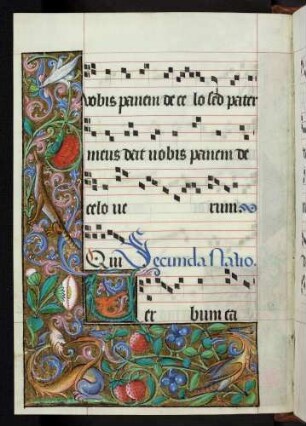 vobis panem de ce lo sed pater
meus dat vobis panem de
celo ve rum
Qui Secunda Statio.
Ver bum ca